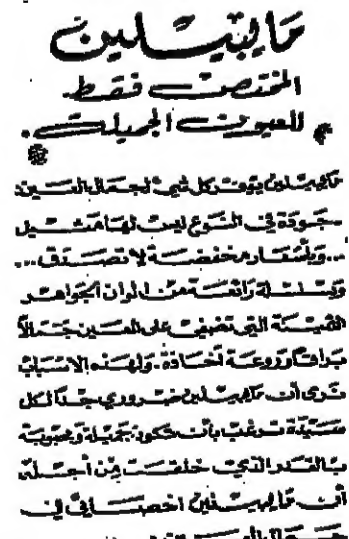 مايبيسلين
المختصت فقط
للعيون الجميلة.
مايبيسلين يوفر كل شيئ لجمال العين:
جودة في النوع ليس لها مثيل
...وبأسعار مخفضة لا تصدق...
وتشكيلة رائعة من ألوان الجواهر
الثمينة التي تضفي على العين جمالاً
براقاً وروعة أخاذة. ولهذه الاسباب
ترى أن مايبيسلين ضروري جداً لكل
سيدة ترغب بأن تكون جميلة ومحبوبة
بالقدر الذي خلقت من أجله
أن مايبيسلين اخصائي في